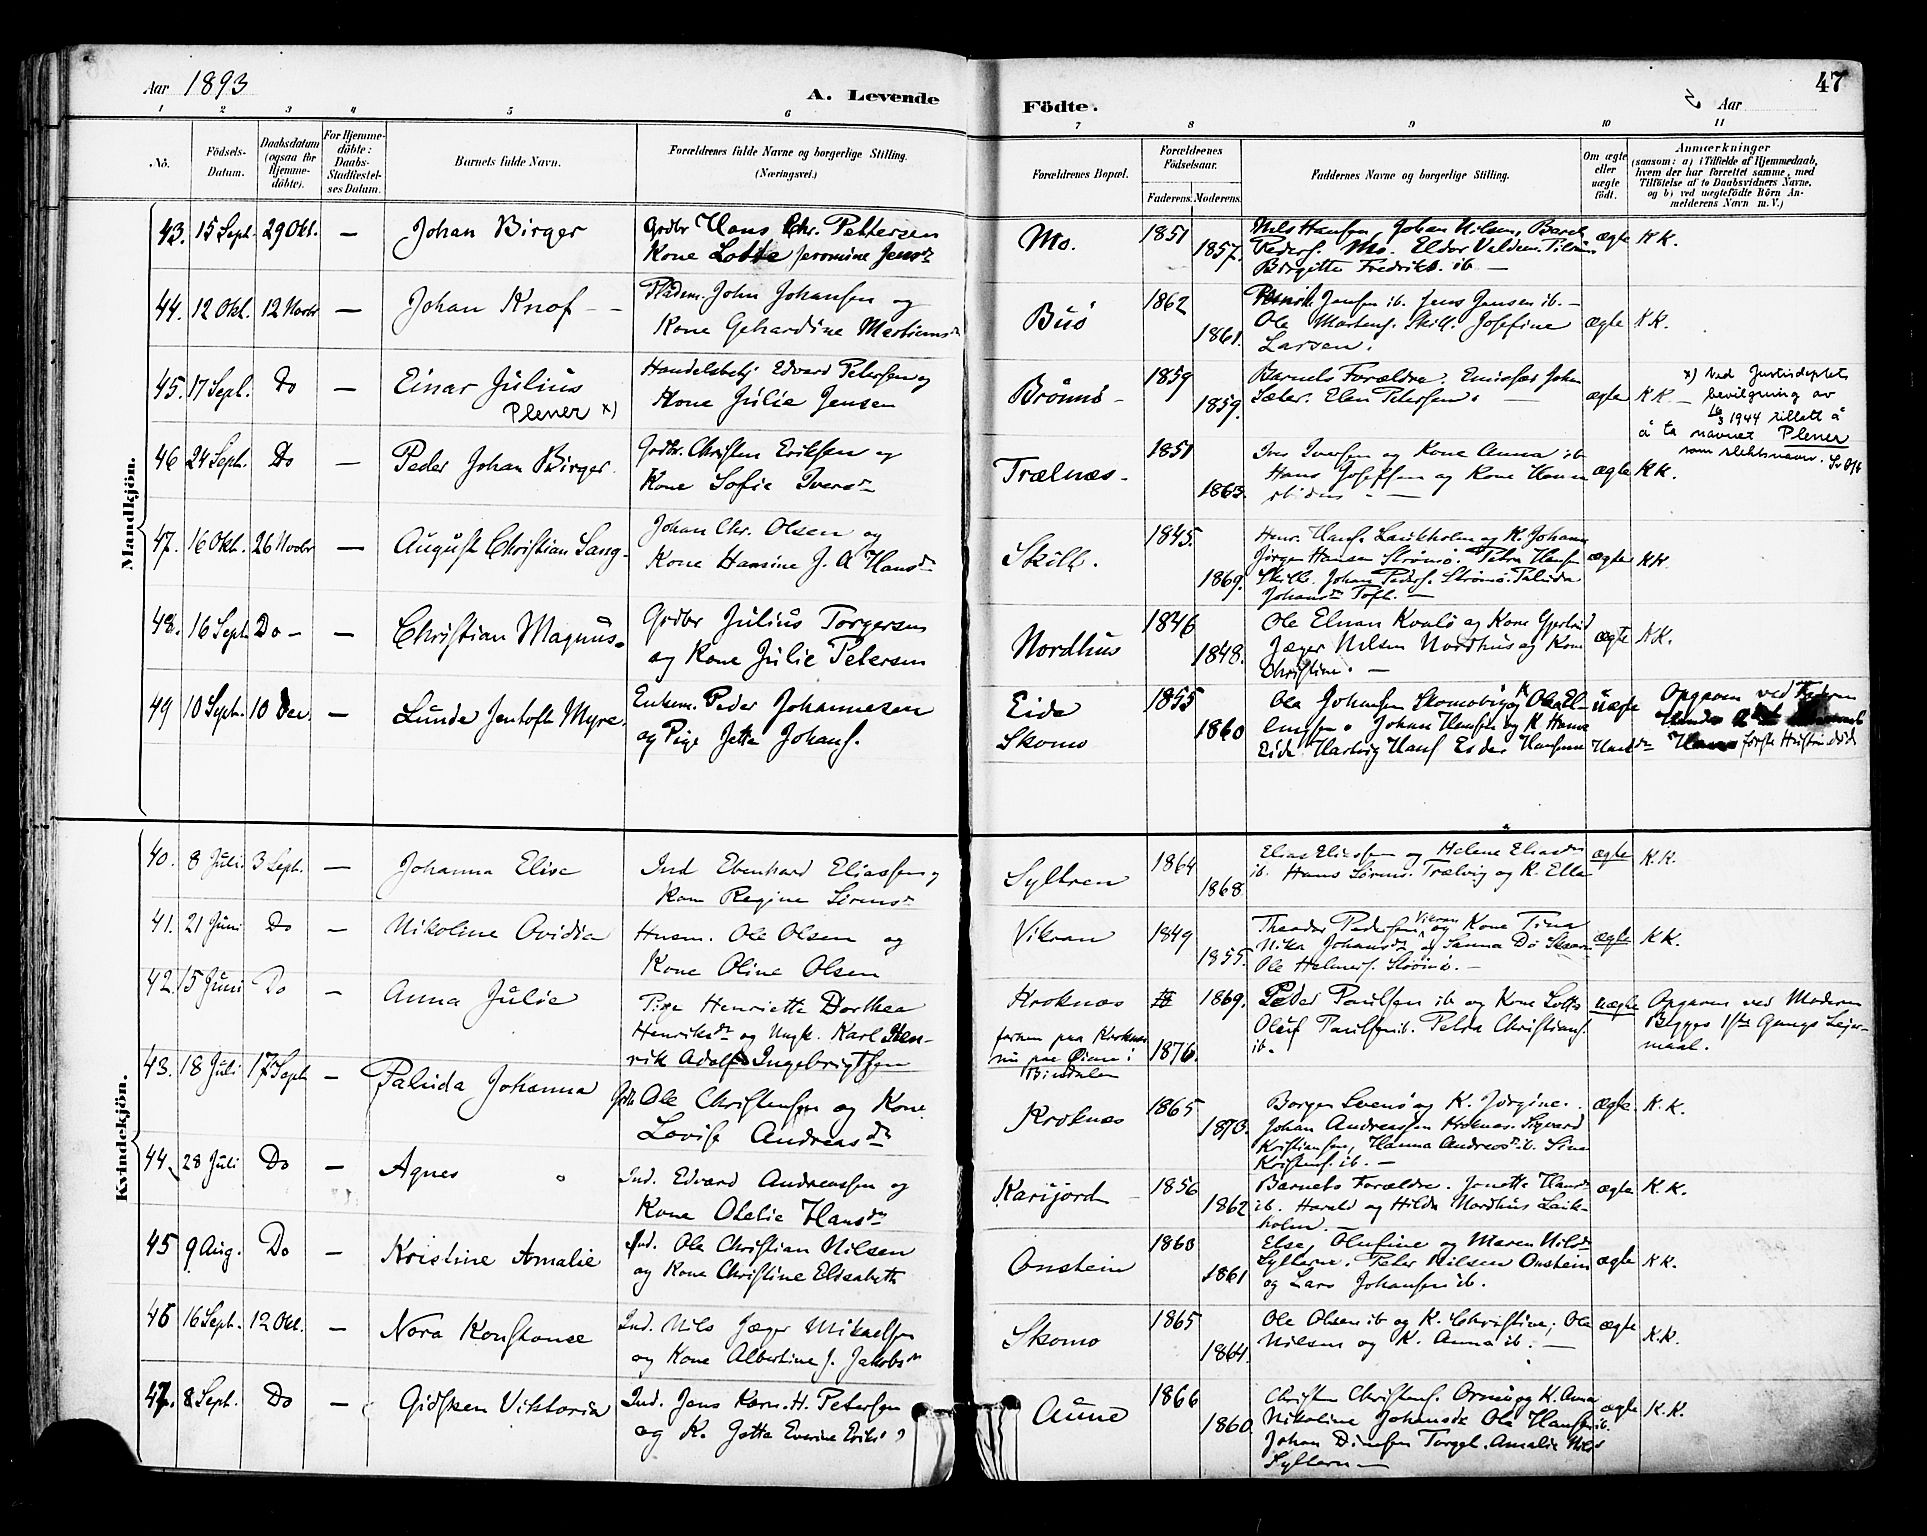 Aar 1893
A. Levende
Födte.
Aar
47
1 2 3 4 5 6 7 8 9 10 11
No.
Födsels-
Datum.
Daabsdatum
(ogsaa for
Hjemme-
döbte).
For Hjemme-
döbte:
Daabs-
Stadfæstel-
ses Datum.
Barnets fulde Navn.
Forældrenes fulde Navne og borgerlige Stilling.
(Næringsvei.)
Forældrenes Bopæl.
Forældrenes
Födselsaar.
Faderens. Moderens.
Faddernes Navne og borgerlige Stilling.
Om ægte
eller
uægte
født.
Anmærkninger
(saasom: a) i Tilfælde af Hjemmedaab,
hvem der har forrettet samme, med
Tilföielse af to Daabsvidners Navne,
og b) ved uægtefödte Börn An-
melderens Navn m. V.)
Mandkjön.
43. 15 Sept. 29 Okt. — Johan Birger
Grdbr Hans Chr. Pettersen
Kone Lotte Jeromine Jensdr
Mo. 1851 1857.
Nils Hansen, Johan Nilsen,
Peders. Mo.
Birgitte Fredriks. ib —
ægte K K.
44. 12 Okt. 12 Novbr — Johan Knof - -
John Johansen og
Kone Gehardine
Buö 1862 1861.
Jansen ib. Jens Jensen ib. —
Ole Martens. Skill. Josefine
Larsen.
ægte K K.
45. 17 Sept. Do — Einar Julius
Plener x)
Edvard Petersen og
Kone Julie Jensen
Brönnö - 1859 1859.
Barnets Forældre.
Sæter. Elen Petersen. —
ægte K K —
x) Ved Justisdeptets
bevilgning av
1944 tillatt å
å ta navnet Plener
som slektsnavn.
46 24 Sept. Do — Peder Johan Birger.
Grdbr. Christen Eriksen og
Kone Sofie Iversdr
Trælnæs. 1851 1863.
Iver Iversen og Kone Anna ib
Hans Josefsen og Kone
ægte K K.
47. 16 Okt. 26 Novbr — August Christian Sang.
Johan Chr. Olsen og
Kone Hansine J. A Hansdr
Skille. 1845. 1869.
Henr. Hans. Laukholm og K. Johanna
Jörgen Hansen Strömö. Petra Hansen
Skille. Johan Peders. Strömö. Palida
Johansdr Toft. —
ægte K K.
48. 16 Sept Do - — Christian Magnus.
Grdbr Julius Torgersen
og Kone Julie Petersen
Nordhus 1846 1848.
Ole Elnan Kvalö og Kone Gjertrud
Jæger Nilsen Nordhus og Kone
Christine. —
ægte K K.
49 10 Sept. 10 Dec. — Lunde Jentoft Myre.
Enkem. Peder Johannesen
og Pige Jette Johans.
Eide
Skomo
1855 1860
Ole Johansen Skomo
Johan Hansen og K. Hanna
Eide. Hartvig Hans
uægte
Opgaven ved
første Hustru död
Kvindekjön.
40. 8 Juli. 3 Sept. — Johanna Elise
Ind Ebenhard Eliassen og
Kone Regine Sörensdr
Syltern 1864 1868
Elias Eliassen og Helene Eliasdr
ib. Hans Sörens. Trælvig og K. Ella
ægte K.K.
41. 21 Juni Do — Nikoline Ovidia
Husm. Ole Olsen og
Kone Oline Olsen
Vikran 1849 1855.
Theodor Pedersen Vikran og Kone Tina
Johansdr og Sanna Do
Ole Helmers. Strömö. —
ægte K K.
42. 15 Juni Do — Anna Julie
Pige Henriette Dorthea
Henriksdr og Ungk. Karl Hen-
rik Adolf Ingebrigtsen
Kroknæs
nu paa
Bindalen
1869. 1876.
Peder Paulsen ib og Kone Lotte
Oluf Paulsen ib. Petra Christians.
ib.
uægte
Opgaven ved Moderen
Begges 1ste Gangs Leier-
maal.
43. 18 Juli 17 Sept — Palida Johanna
Ole Christensen og Kone
Lovise Andreasdr
Kroknæs 1865 1873.
Borger Svensö og K. Jörgine.
Johan Andreassen Kroknæs. Sigvard
Kristiansen, Hanna Andreasdr ib. Sine
Kristens. ib. —
ægte. K. K.
44. 28 Juli Do — Agnes
Ind. Edvard Andreassen og
Kone Otelie Hansdr
Karijord — 1856 1862
Barnets Forældre. Jonette Hansdr
ib. Harald og Hilda Nordhus Lauk-
holm. —
ægte K. K.
45 9 Aug. Do — Kristine Amalie
Ind. Ole Christian Nilsen
og Kone Christine Elisabeth
Onstein 1863 1861
Else, Olufine og Maren Nilsdr
Syltern. Peter Nilsen Onstein
og Lars Johansen ib.
ægte K K.
46 16 Sept. 12 Okt. — Nora Konstanse
Ind. Nils Jæger Mikaelsen
og Kone Albertine J. Jakobsdr
Skomo 1865 1864.
Ole Olsen ib og K. Christine; Ole
Nilsen og K. Anna ib. —
ægte K.K.
47. 8 Sept. Do — Gidsken Viktoria
Ind. Jens Korn. H. Petersen
og K. Jette Everine
Aune 1866 1860.
Christen Christens. Ormö og K. Anna
Nikoline Johansdr Ole Hansen ib.
Johan Dinesen Torget. Amalie Nils
Syltern —
ægte K. K.